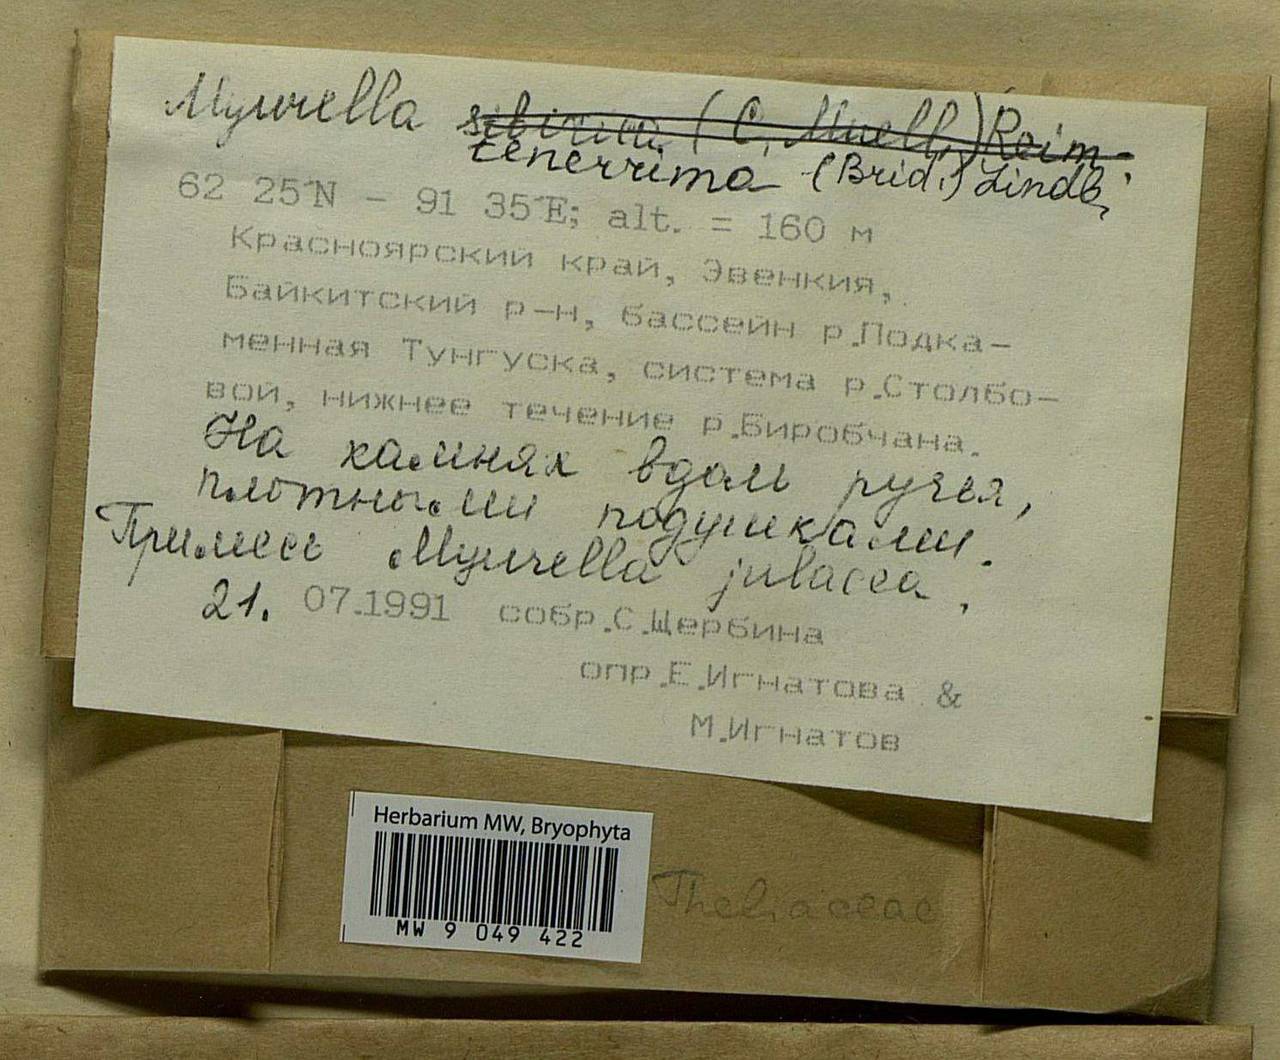 Myurella sibirica (C. Muell.) Reim.
tenerrima (Brid.) Lindb.
62 25'N - 91 35'E; alt. = 160 м
Красноярский край, Эвенкия,
Байкитский р-н, бассейн р.Подка-
менная Тунгуска, система р.Столбо-
вой, нижнее течение р.Биробчана.
На камнях вдоль ручья,
плотными подушками.
Примесь Myurella julacea.
21. 07.1991 собр.С.Щербина
опр.Е.Игнатова &
М.Игнатов
Herbarium MW, Bryophyta
MW 9 049 422
Theliaceae